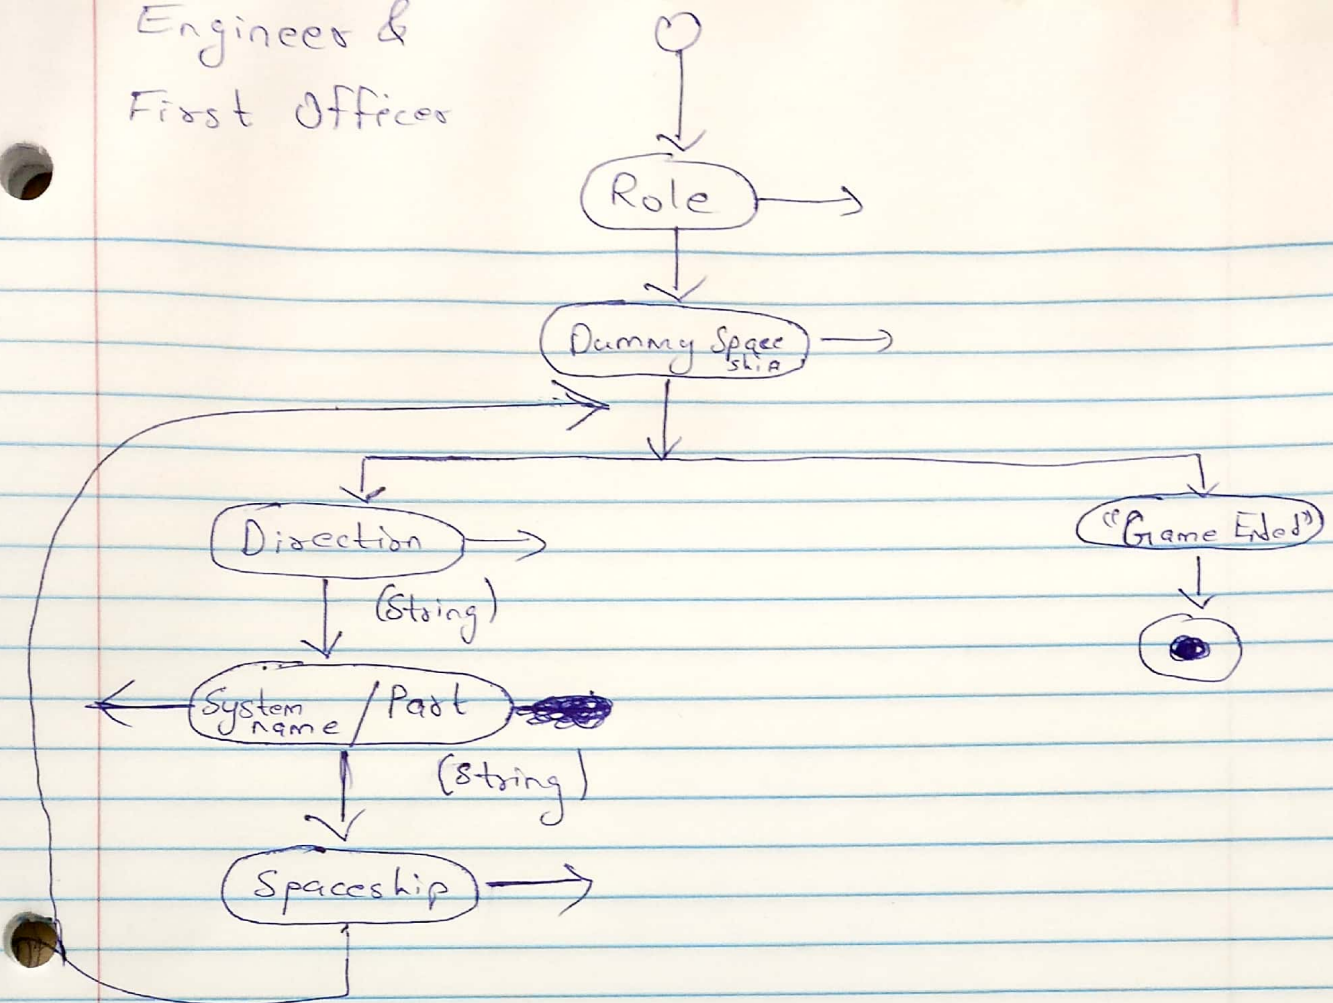 Engineer &
First Officer
Role
Dummy Space
ship
Direction
"Game Ended"
(String)
System
name / Part
(String)
Spaceship